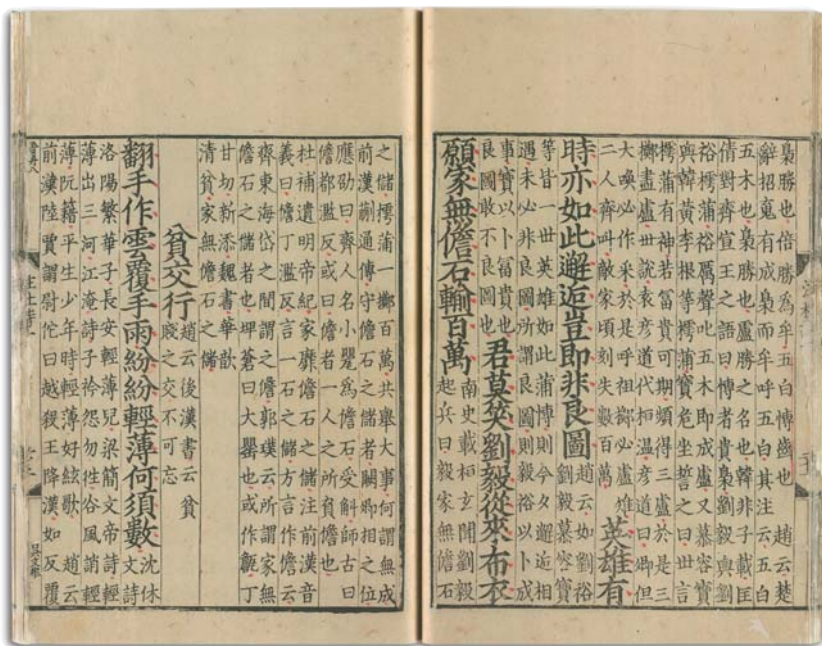 梟勝也倍勝為牟五白博齒也 趙云楚
辭招䰟有成梟而牟呼五白其注云五白
五木也梟勝也盧勝之名也韓非子載匡
倩對齊宣王之語曰博者貴梟劉毅與劉
裕摴蒲裕厲聲叱五木即成盧又慕容寶
與韓黃李根等摴蒲危坐誓之曰世言
摴蒲有神若冨貴可期頻得三盧於是三
擲盡盧世說袁彥道代桓温彥道曰卿但
大喚必作采於是呼祖擲必盧雉
二人齊叫敵家頃刻失數百萬
英雄有
時亦如此邂逅豈即非良圖
趙云如劉裕
劉毅慕容寶
等皆一世英雄如此蒲博則今夕邂逅相
遇未必非良圖所謂良圖則毅裕以卜成
事寶以卜冨貴也
良圖敢不良圖也
君莫笑劉毅從來布衣
願家無儋石輸百萬
南史載桓玄聞劉毅
起兵曰毅家無儋石
之儲摴蒲一擲百萬共舉大事何謂無成
前漢蒯通傳守儋石之儲者闕卿相之位
應劭曰齊人名小甖為儋石受斛師古曰
儋都濫反或曰儋者一人之所負儋也
杜補遺明帝紀家靡儋石之儲注前漢音
義曰儋丁濫反言一石之儲方言作儋云
齊東海岱之間謂之儋郭璞云所謂家無
儋石之儲者也埤蒼曰大罌也或作甔丁
甘切新添魏書華歆
清貧家無儋石之儲
貧交行
趙云後漢書云貧
賤之交不可忘
翻手作雲覆手雨紛紛輕薄何須數
沈休
文詩
洛陽繁華子長安輕薄兒梁簡文帝詩輕
薄出三河江淹詩子衿怨勿徃谷風誚輕
薄阮籍平生少年時輕薄好絃歌 趙云
前漢陸賈謂尉佗曰越殺王降漢如反覆